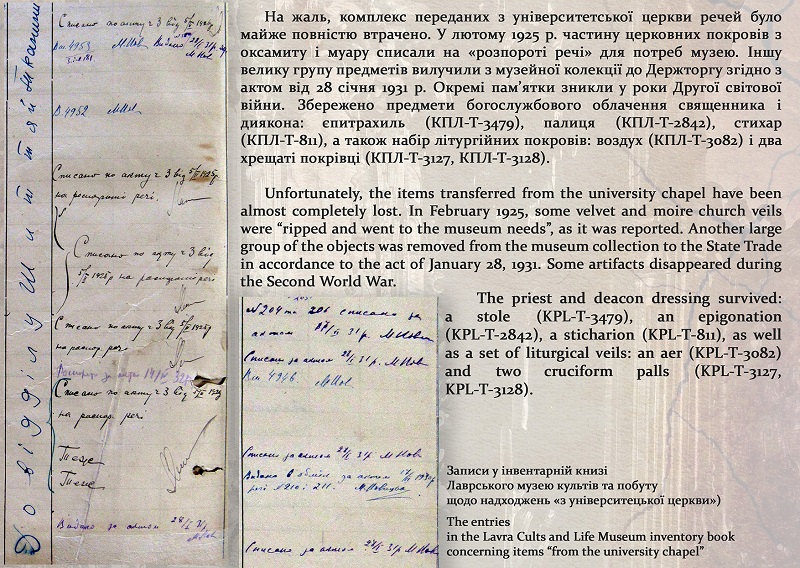 На жаль, комплекс переданих з університетської церкви речей було
майже повністю втрачено. У лютому 1925 р. частину церковних покровів з
оксамиту і муару списали на «розпороті речі» для потреб музею. Іншу
велику групу предметів вилучили з музейної колекції до Держторгу згідно з
актом від 28 січня 1931 р. Окремі пам’ятки зникли у роки Другої світової
війни. Збережено предмети богослужбового облачення священника і
диякона: єпитрахиль (КПЛ-Т-3479), палиця (КПЛ-Т-2842), стихар
(КПЛ-Т-811), а також набір літургійних покровів: воздух (КПЛ-Т-3082) і два
хрещаті покрівці (КПЛ-Т-3127, КПЛ-Т-3128).
Unfortunately, the items transferred from the university chapel have been
almost completely lost. In February 1925, some velvet and moire church veils
were “ripped and went to the museum needs”, as it was reported. Another large
group of the objects was removed from the museum collection to the State Trade
in accordance to the act of January 28, 1931. Some artifacts disappeared during
the Second World War.
The priest and deacon dressing survived:
a stole (KPL-T-3479), an epigonation
(KPL-T-2842), a sticharion (KPL-T-811), as well
as a set of liturgical veils: an aer (KPL-T-3082)
and two cruciform palls (KPL-T-3127,
KPL-T-3128).
Записи у інвентарній книзі
Лаврського музею культів та побуту
щодо надходжень «з університецької церкви»)
The entries
in the Lavra Cults and Life Museum inventory book
concerning items “from the university chapel”
До відділу Шиття й Тканини
Списано по акту ч 3 від
Вт 4953
В 4952
Списано по акту ч 3 від 5/II 1925р
на роспораті речі.
Списано по акту ч 3 від
5/II 1925р на распораті речі
Списано по акту ч 3 від 5/II 1925р
на распор. речі
Списано по акту ч 3 від
на распор. речі
Теже
Теже
Видано за актом 28/I 31р
N204 та 206 списано за
актом 31 р.
Списано за актом 31 р.
Вт 4946
Списано за актом 28/I 31р
Видано в обмін за актом
речі №210 і 211.
Списано за актом 28/I 31р